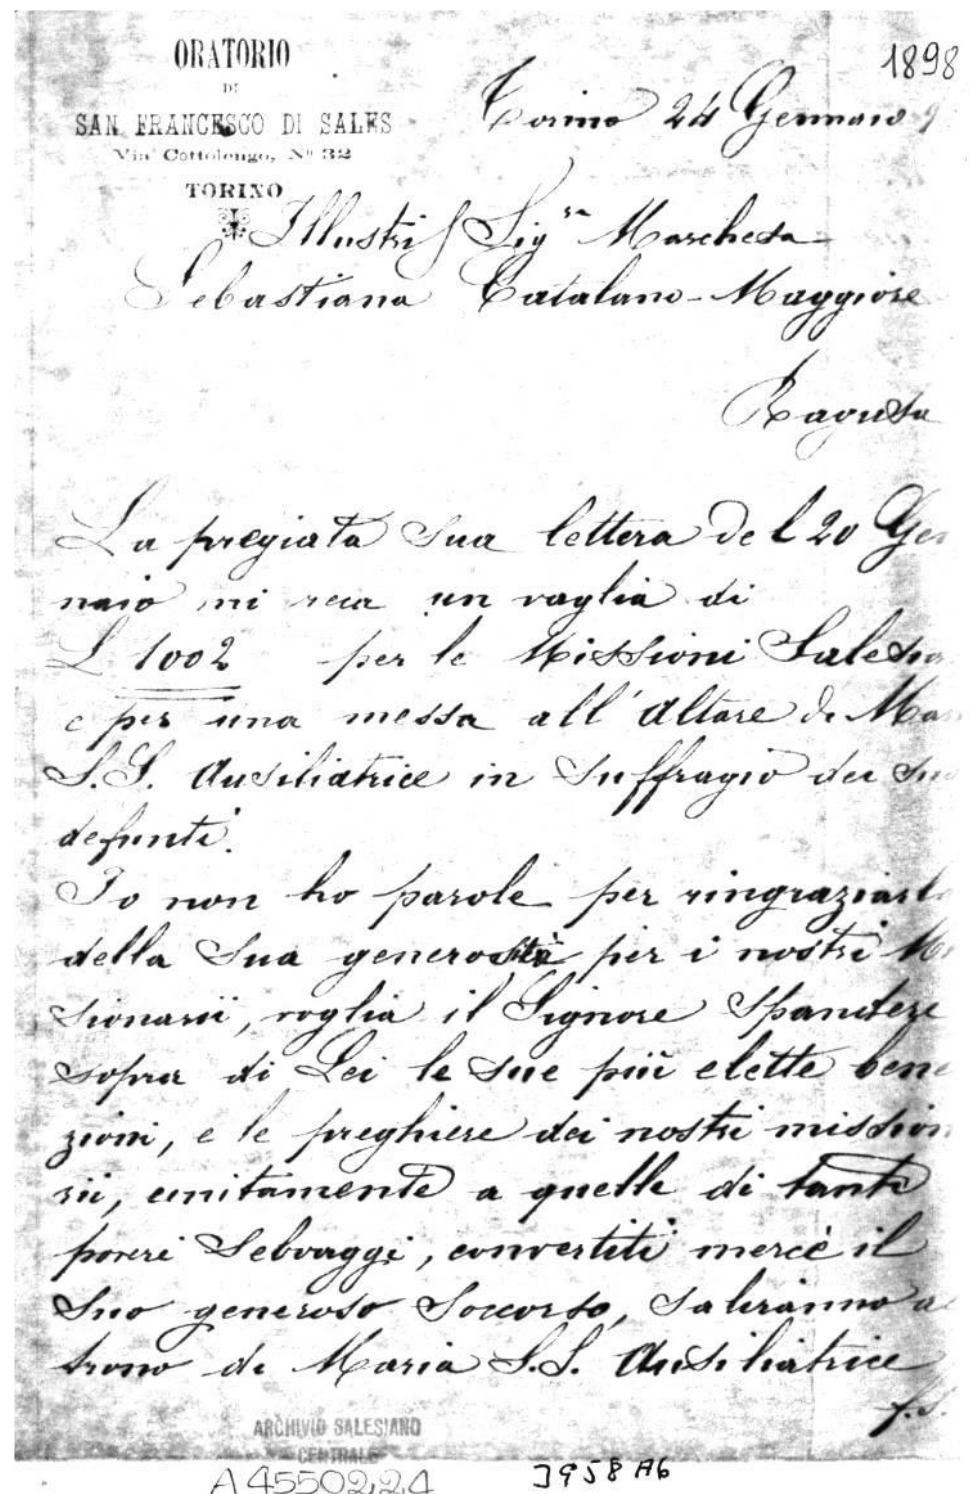 1898
ORATORIO
DI
SAN FRANCESCO DI SALES
Via Cottolengo, Nº 32
TORINO
Torino 24 Gennaio 9
Illustri Sigra Marchesa
Sebastiana Catalano-Maggiore
Ragusa
La pregiata Sua lettera del 20 Gen
naio mi reca un vaglia di
L 1002 per le Missioni Salesia
e per una messa all'Altare di Mar
S.S. Ausiliatrice in Suffragio dei suo
defunti.
Io non ho parole per ringraziarla
della Sua generosità per i nostri Mi
sionarii, voglia il Signore Spandere
sopra di Lei le sue più elette bene
zioni, e le preghiere dei nostri mission
rii, unitamente a quelle di tanti
poveri Selvaggi, convertiti mercè il
Suo generoso Soccorso, Saliranno a
trono di Maria S.S. Ausiliatrice
f.s.
ARCHIVIO SALESIANO
CENTRALE
A4550224
3958 A6